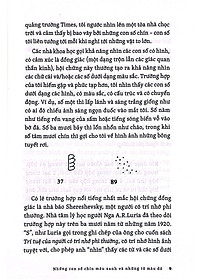 quảng trường Times, tôi người nhìn lên một tòa nhà chọc
trời và cảm thấy bị bao vây bởi những con số chín – con số
tôi liên tưởng tới nỗi khi nghĩ tới những vật to lớn.
Các nhà khoa học gọi khả năng nhìn các con số có hình,
có cảm xúc là đồng giác (một dạng trộn lẫn các giác quan
thần kinh), kết hợp này thường tạo ra khả năng nhìn
các chữ cái và/hoặc các số dưới dạng màu sắc. Trường hợp
của tôi hiếm gặp và phức tạp hơn, tôi nhìn thấy các con số
dưới dạng các hình, có màu sắc, có cấu trúc và có chuyển
động. Ví dụ, số một thì lấp lánh và sáng trắng giống như
có ai đó chiếu ánh sáng ngọn đuốc vào mắt tôi. Số năm
như tiếng vang của sấm hoặc tiếng sóng biển vỗ vào
bờ đá. Số ba mươi bảy thì lổn nhổn như cháo, trong khi số
tám mươi chín làm tôi liên tưởng tới hình ảnh những bông
tuyết rơi.
37 89
Có lẽ trường hợp nổi tiếng nhất mắc hội chứng đồng
giác là nhà báo Shereshevsky, một người có trí nhớ phi
thường. Nhà tâm lý học người Nga A.R.Luria đã theo dõi
trường hợp này trong suốt ba mươi năm từ những năm 1920.
"S", như Luria gọi trong ghi chép của ông cho cuốn sách
Trí tuệ của người có trí nhớ phi thường, có trí nhớ hình ảnh
tuyệt vời, cho phép anh nhìn thấy các từ và các số dưới
Những con số chín màu xanh và những từ màu đỏ 9